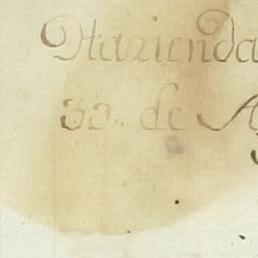 Hazienda
35.. de A